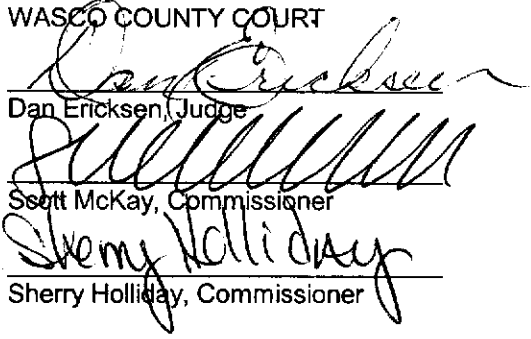 WASCO COUNTY COURT
Dan Ericksen
Dan Ericksen, Judge
Scott McKay, Commissioner
Sherry Holliday
Sherry Holliday, Commissioner